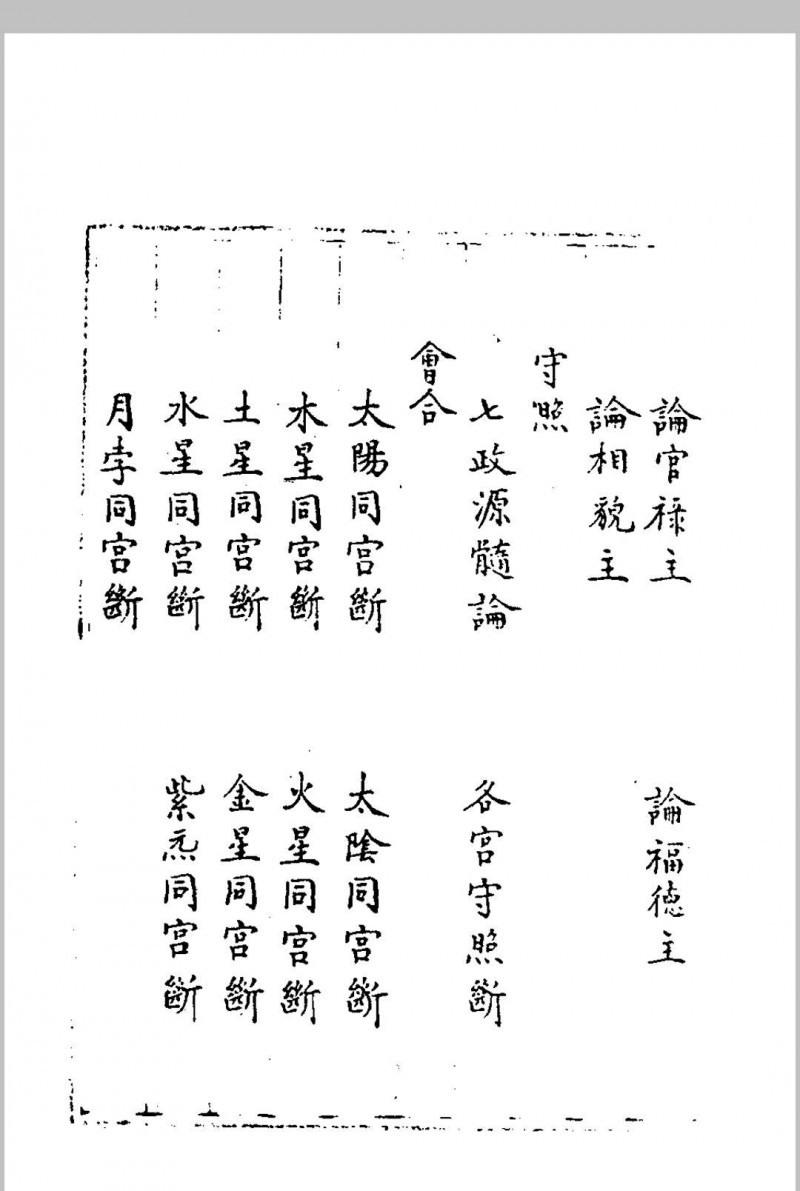 論官祿主　論福德主
論相貌主
守照
七政源髓論　各宮守照斷
會合
太陽同宮斷　太陰同宮斷
木星同宮斷　火星同宮斷
土星同宮斷　金星同宮斷
水星同宮斷　紫炁同宮斷
月孛同宮斷